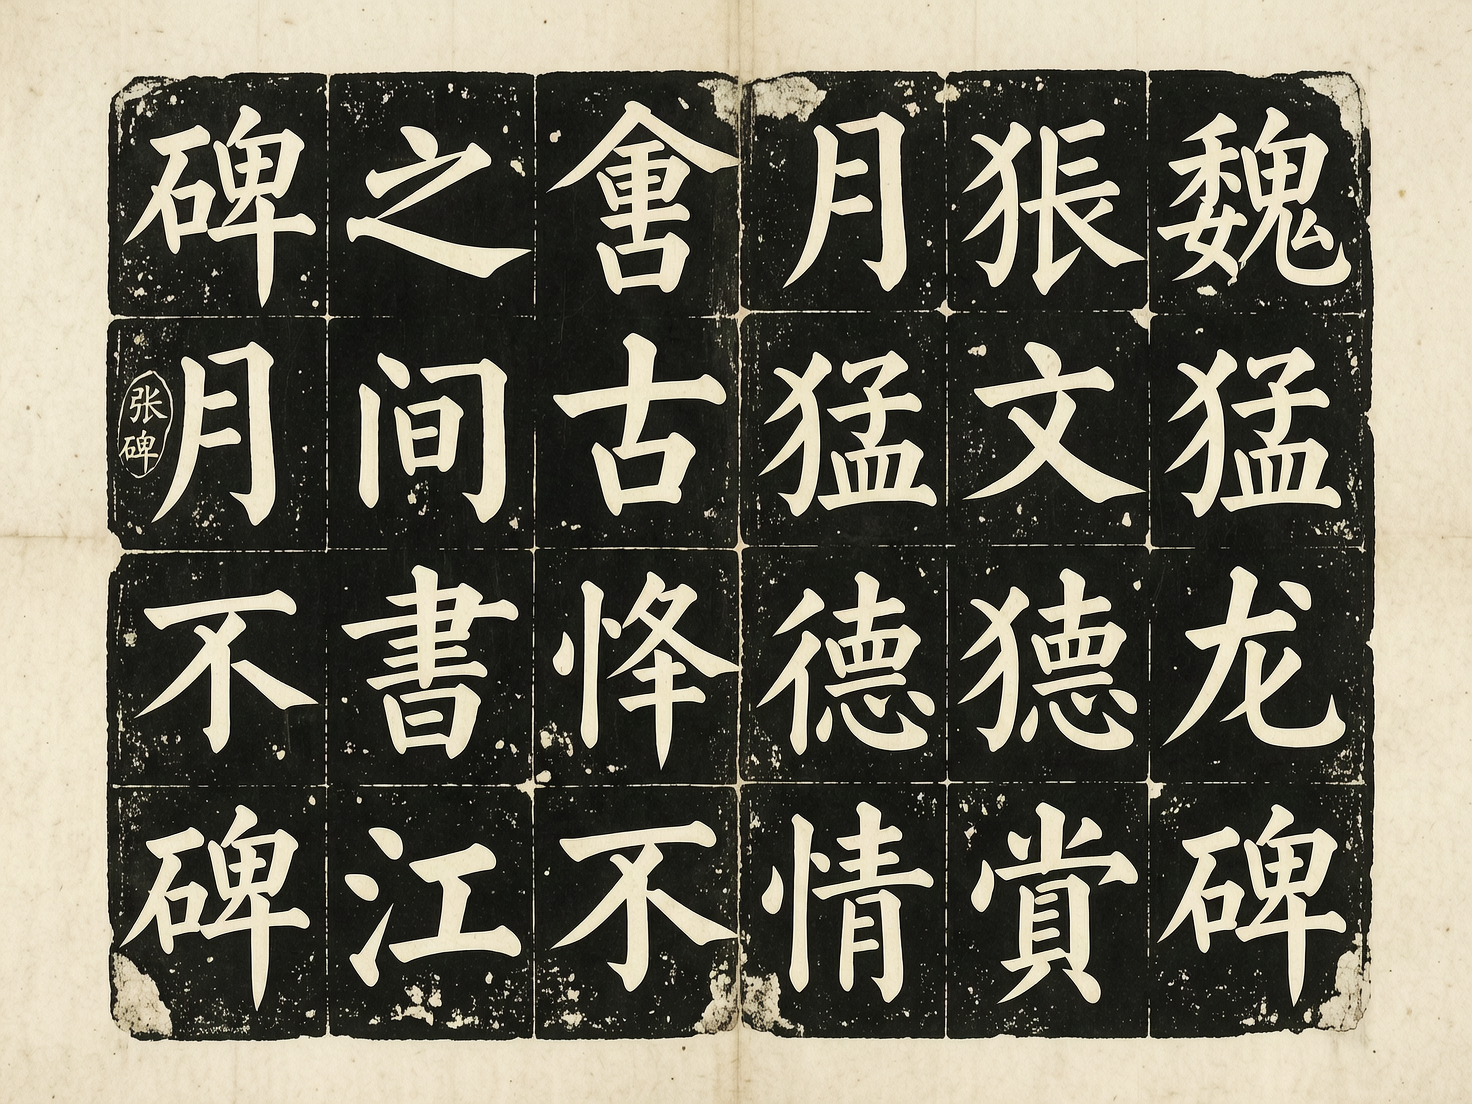 魏猛龙碑
文賞
月猛德情
古不
之间書江
碑月不碑
张碑